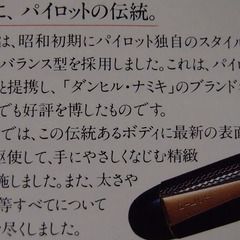 に、パイロットの伝統。
は、昭和初期にパイロット独自のスタイル
バランス型を採用しました。これは、パイロ
と提携し、「ダンヒル・ナミキ」のブランド
でも好評を博したものです。
では、この伝統あるボディに最新の表面
駆使して、手にやさしくなじむ精緻
施しました。また、太さや
等すべてについて
尽くしました。